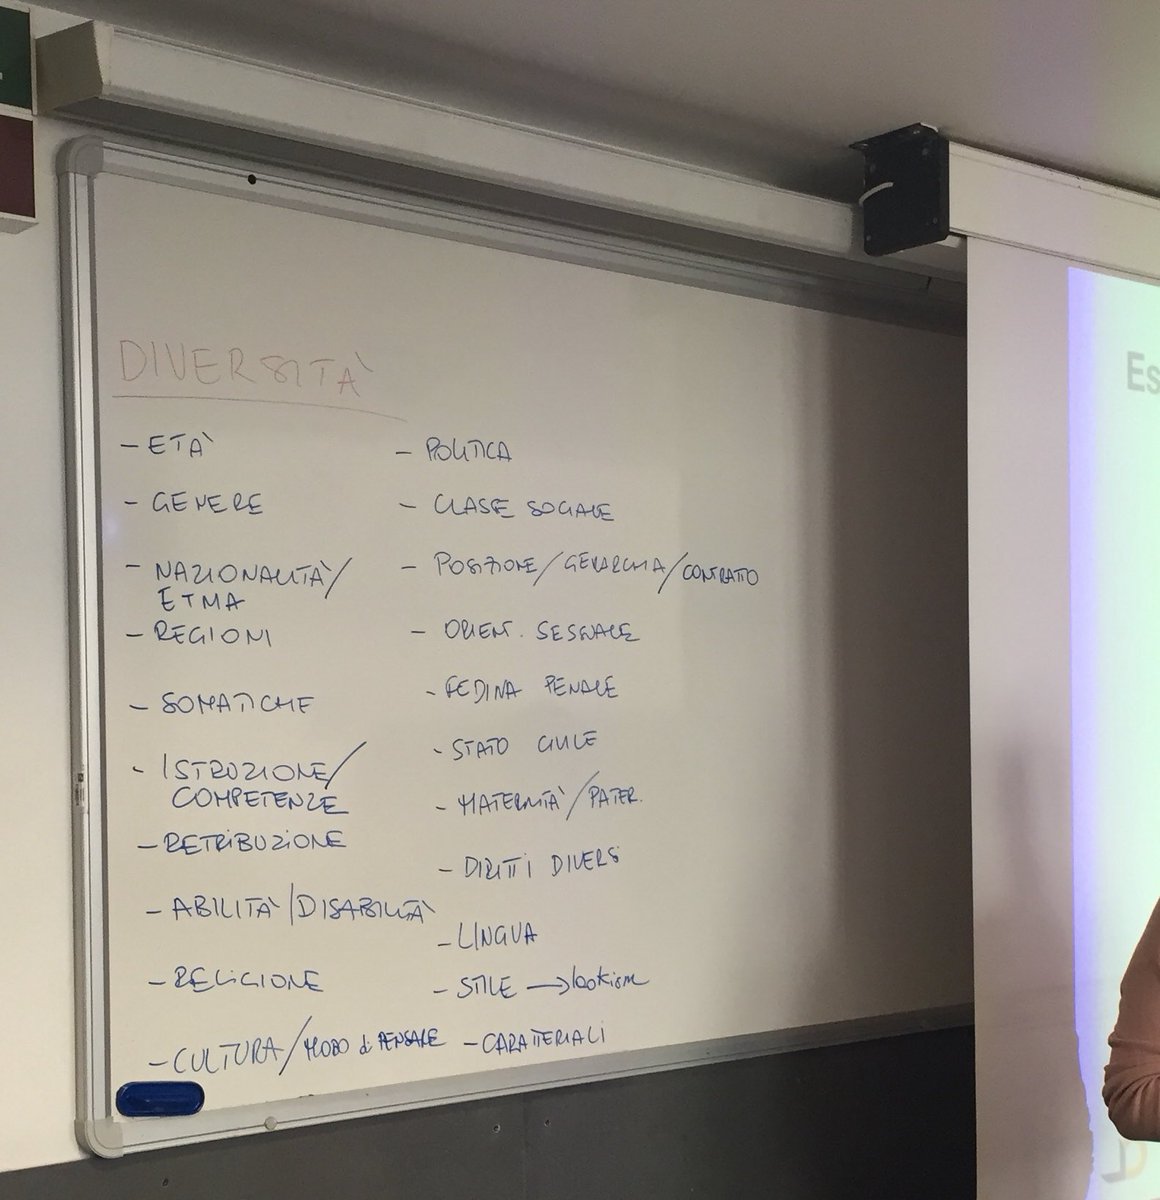 DIVERSITÀ
- ETÀ
- GENERE
- NAZIONALITÀ/
ETNIA
- REGIONI
- SOMATICHE
- ISTRUZIONE/
COMPETENZE
- RETRIBUZIONE
- ABILITÀ/DISABILITÀ
- RELIGIONE
- CULTURA/MODO di PENSARE
- POLITICA
- CLASSE SOCIALE
- POSIZIONE/GERARCHIA/CONTRATTO
- ORIENT. SESSUALE
- FEDINA PENALE
- STATO CIVILE
- MATERNITÀ/PATER.
- DIRITTI DIVERSI
- LINGUA
- STILE → lookism
- CARATTERIALI
Es